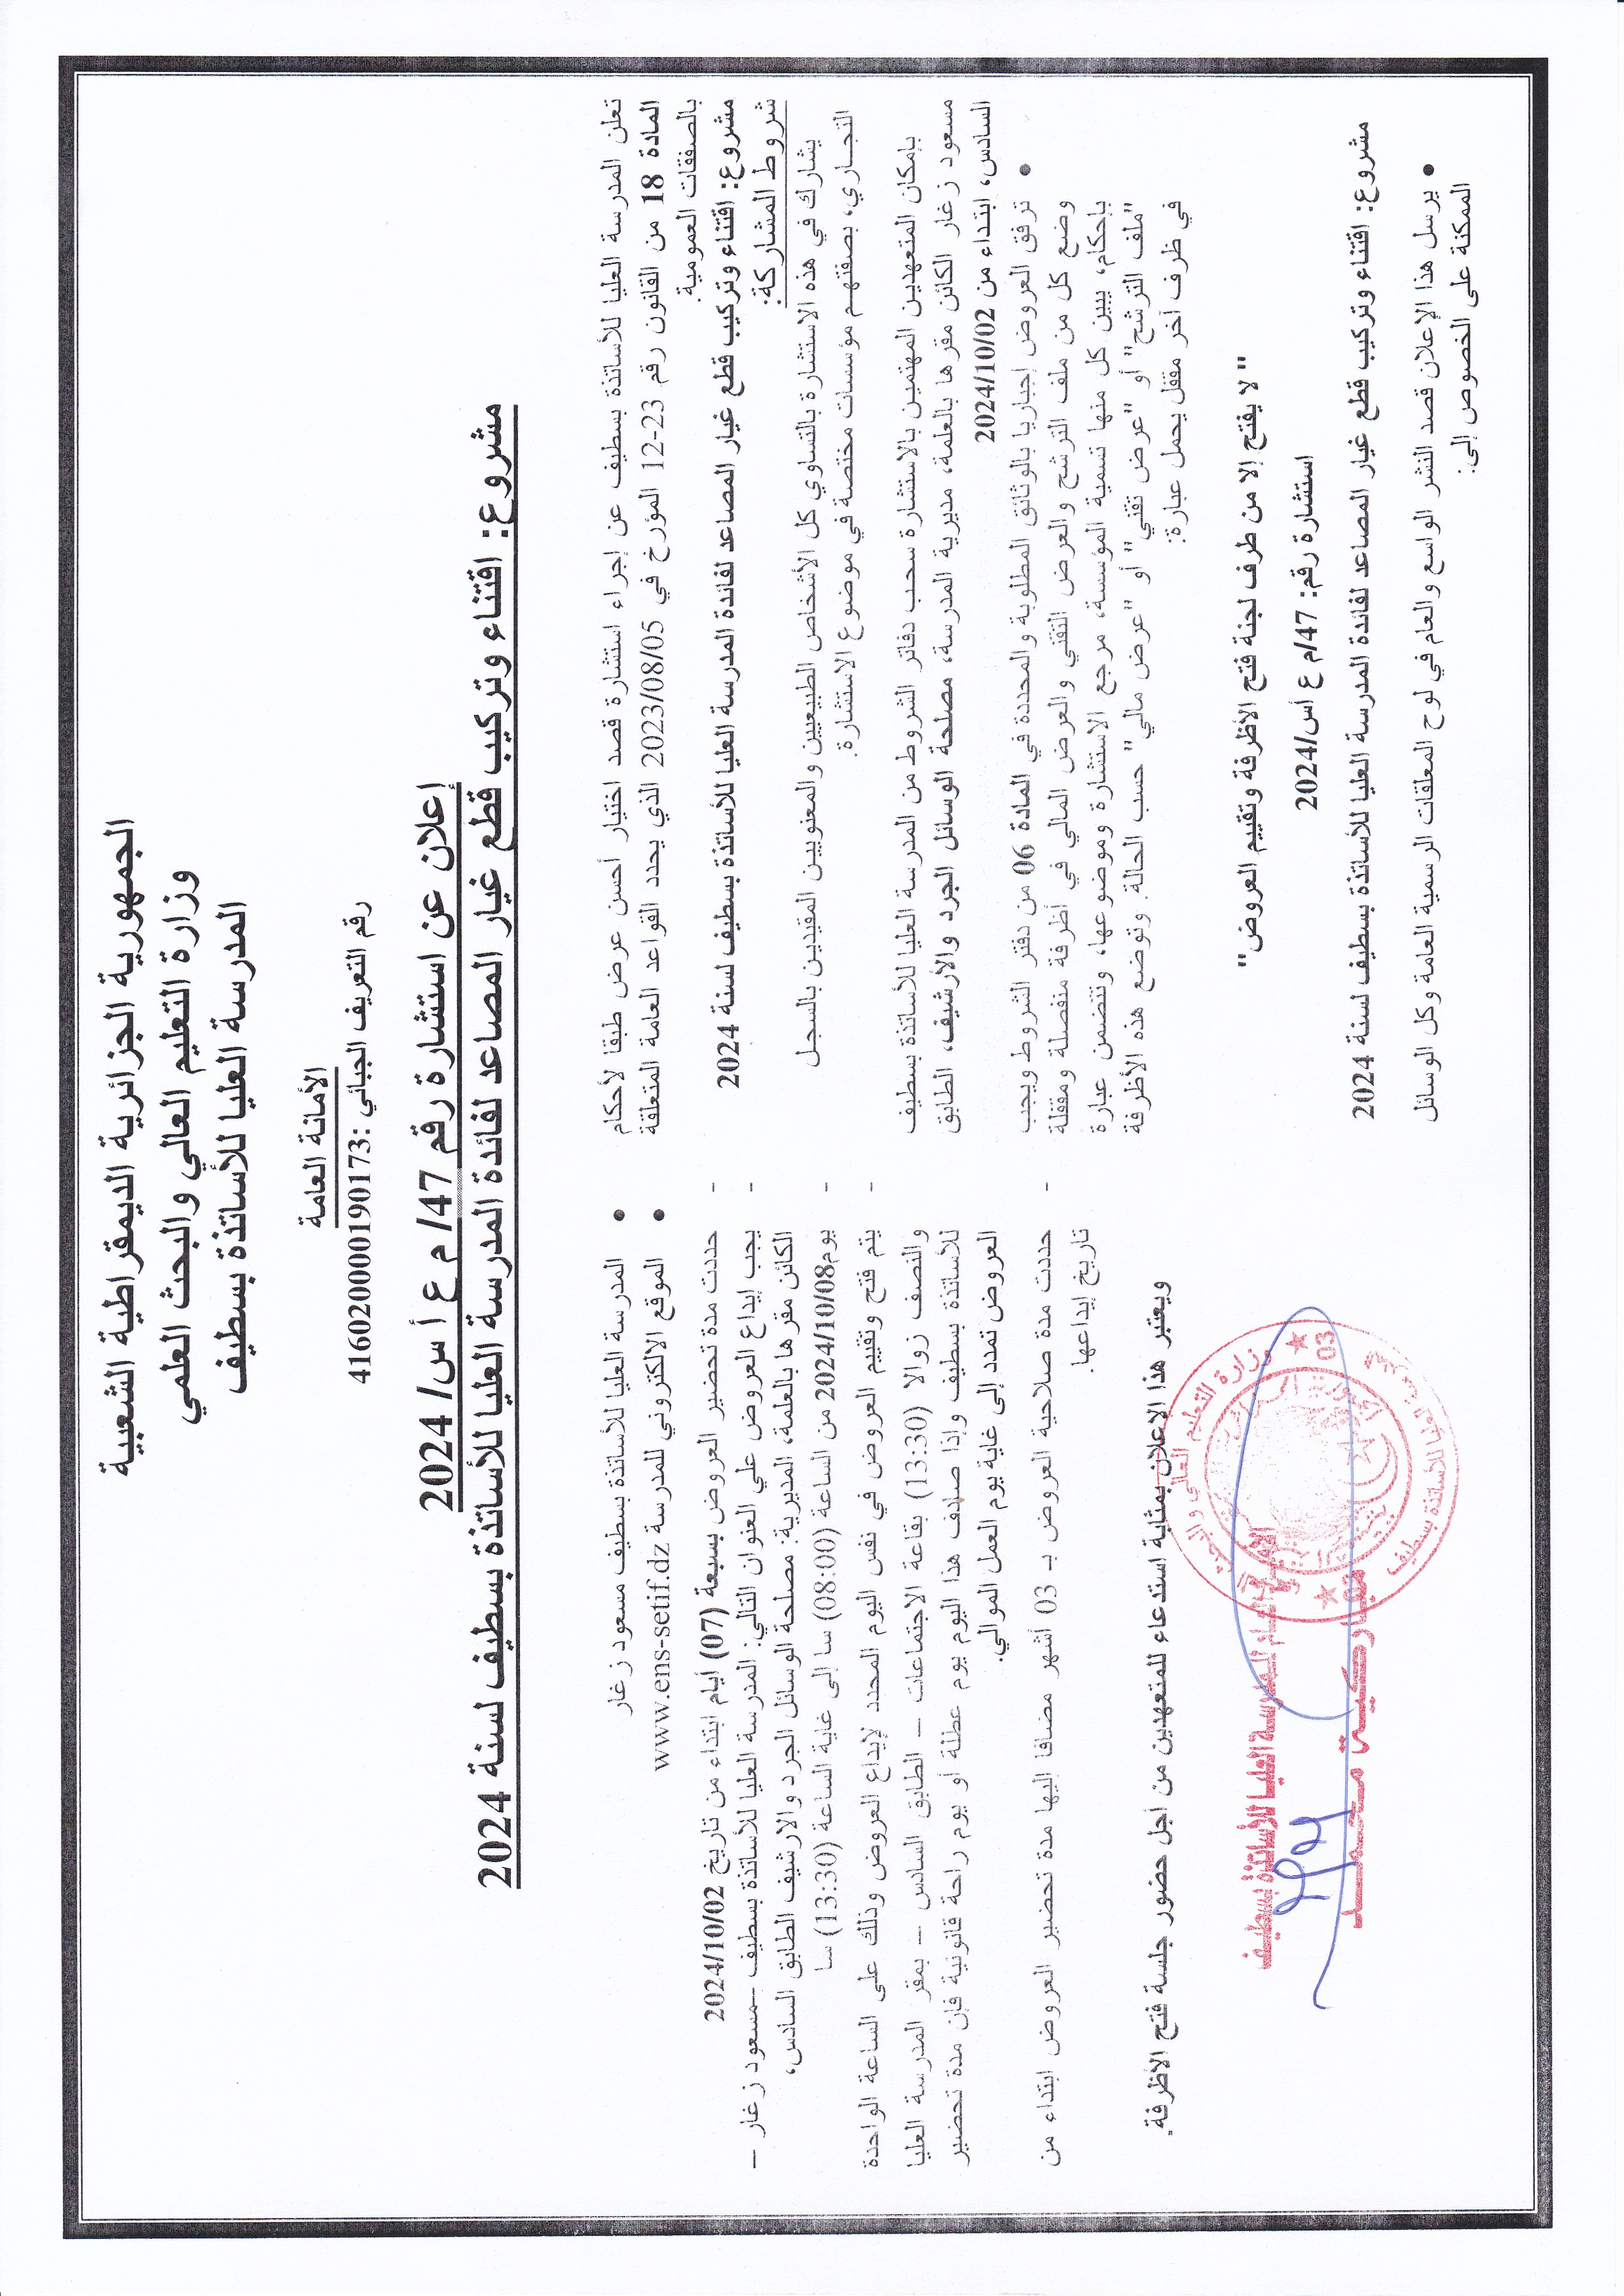 الجمهورية الجزائرية الديمقراطية الشعبية
وزارة التعليم العالي والبحث العلمي
المدرسة العليا للأساتذة بسطيف
الأمانة العامة
رقم التعريف الجبائي :416020000190173
إعلان عن استشارة رقم 47/ م ع أ س/ 2024
مشروع: اقتناء وتركيب قطع غيار المصاعد لفائدة المدرسة العليا للأساتذة بسطيف لسنة 2024
تعلن المدرسة العليا للأساتذة بسطيف عن إجراء استشارة قصد اختيار أحسن عرض طبقا لأحكام
المادة 18 من القانون رقم 23-12 المؤرخ في 2023/08/05 الذي يحدد القواعد العامة المتعلقة
بالصفقات العمومية.
مشروع: اقتناء وتركيب قطع غيار المصاعد لفائدة المدرسة العليا للأساتذة بسطيف لسنة 2024
شروط المشاركة:
يشارك في هذه الاستشارة بالتساوي كل الأشخاص الطبيعيين والمعنويين المقيدين بالسجل
التجاري، بصفتهم مؤسسات مختصة في موضوع الاستشارة.
بإمكان المتعهدين المهتمين بالاستشارة سحب دفاتر الشروط من المدرسة العليا للأساتذة بسطيف
مسعود زغار الكائن مقرها بالعلمة، مديرية المدرسة، مصلحة الوسائل الجرد والأرشيف، الطابق
السادس، ابتداء من 2024/10/02
• ترفق العروض إجباريا بالوثائق المطلوبة والمحددة في المادة 06 من دفتر الشروط ويجب
وضع كل من ملف الترشح والعرض التقني والعرض المالي في أظرفة منفصلة ومقفلة
بإحكام، يبين كل منها تسمية المؤسسة، مرجع الاستشارة وموضوعها، وتتضمن عبارة
"ملف الترشح" أو "عرض تقني" أو "عرض مالي" حسب الحالة. وتوضع هذه الأظرفة
في ظرف آخر مقفل يحمل عبارة:
" لا يفتح إلا من طرف لجنة فتح الأظرفة وتقييم العروض"
استشارة رقم: 47/م ع أس/2024
مشروع: اقتناء وتركيب قطع غيار المصاعد لفائدة المدرسة العليا للأساتذة بسطيف لسنة 2024
• يرسل هذا الإعلان قصد النشر الواسع والعام في لوح المعلقات الرسمية العامة وكل الوسائل
الممكنة على الخصوص إلى:
• المدرسة العليا للأساتذة بسطيف مسعود زغار
• الموقع الالكتروني للمدرسة www.ens-setif.dz
- حددت مدة تحضير العروض بسبعة (07) أيام ابتداء من تاريخ 2024/10/02
- يجب إيداع العروض على العنوان التالي: المدرسة العليا للأساتذة بسطيف –مسعود زغار –
الكائن مقرها بالعلمة، المديرية: مصلحة الوسائل الجرد والارشيف الطابق السادس،
- يوم2024/10/08 من الساعة (08:00) سا إلى غاية الساعة (13:30) سا
- يتم فتح وتقييم العروض في نفس اليوم المحدد لإيداع العروض وذلك على الساعة الواحدة
والنصف زوالا (13:30) بقاعة الاجتماعات – الطابق السادس – بمقر المدرسة العليا
للأساتذة بسطيف وإذا صادف هذا اليوم يوم عطلة أو يوم راحة قانونية فإن مدة تحضير
العروض تمدد إلى غاية يوم العمل الموالي.
- حددت مدة صلاحية العروض بـ 03 أشهر مضافا إليها مدة تحضير العروض ابتداء من
تاريخ إيداعها.
ويعتبر هذا الإعلان بمثابة استدعاء للمتعهدين من أجل حضور جلسة فتح الأظرفة.
الأمين العام للمدرسة العليا للأساتذة بسطيف
مباركية محمد
وزارة التعليم العالي والبحث
العليا للأساتذة بسطيف
03